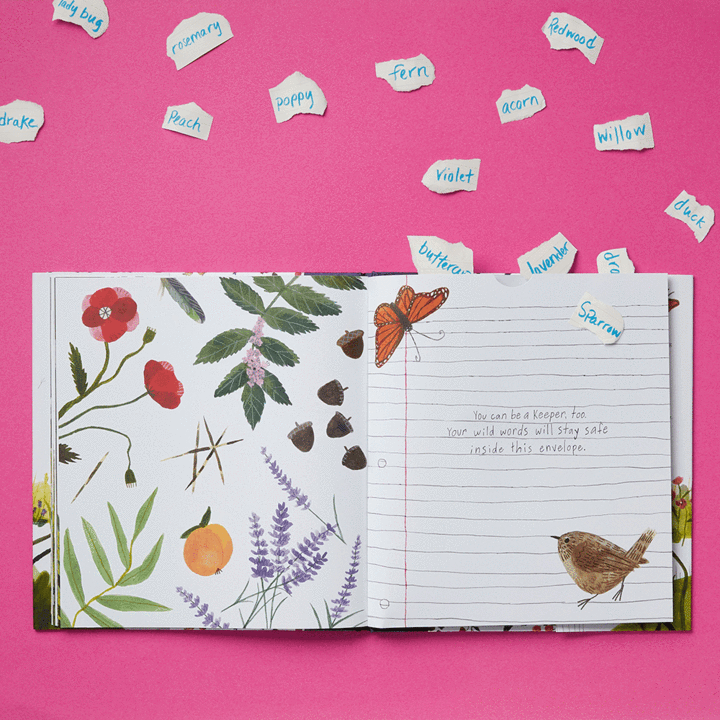 lady bug
rosemary
Redwood
fern
poppy
acorn
drake
Peach
Willow
violet
duck
lavender
Sparrow
You can be a Keeper, too.
Your wild words will stay safe
inside this envelope.